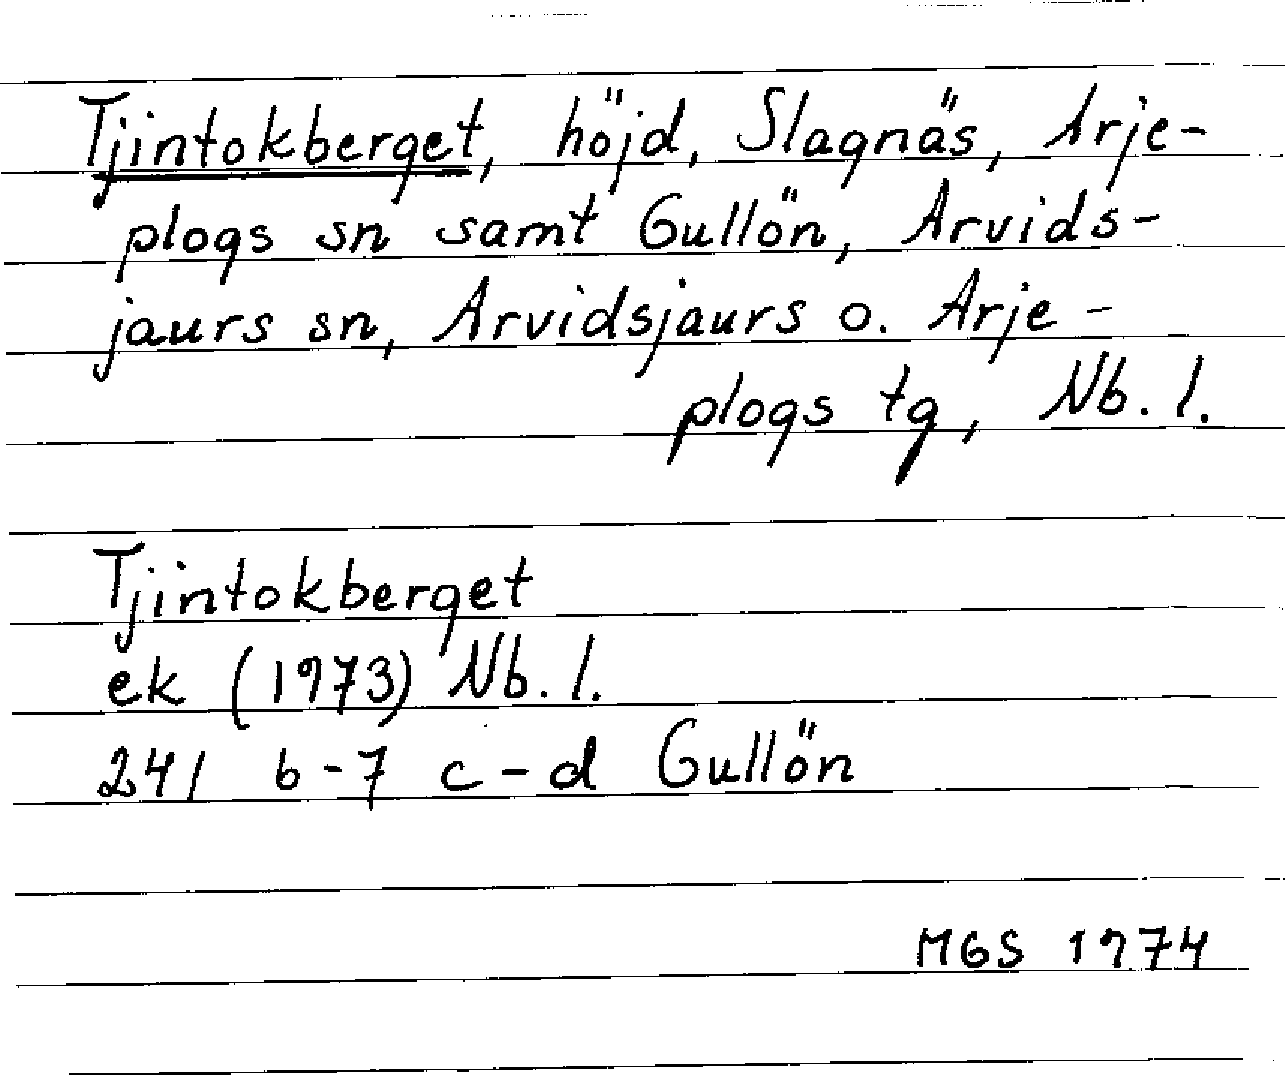 Tjintokberget, höjd, Slagnäs, Arje-
plogs sn samt Gullön, Arvids-
jaurs sn, Arvidsjaurs o. Arje-
plogs tg, Nb. l.
Tjintokberget
ek (1973) Nb. l.
24I 6-7 c-d Gullön
MGS 1974